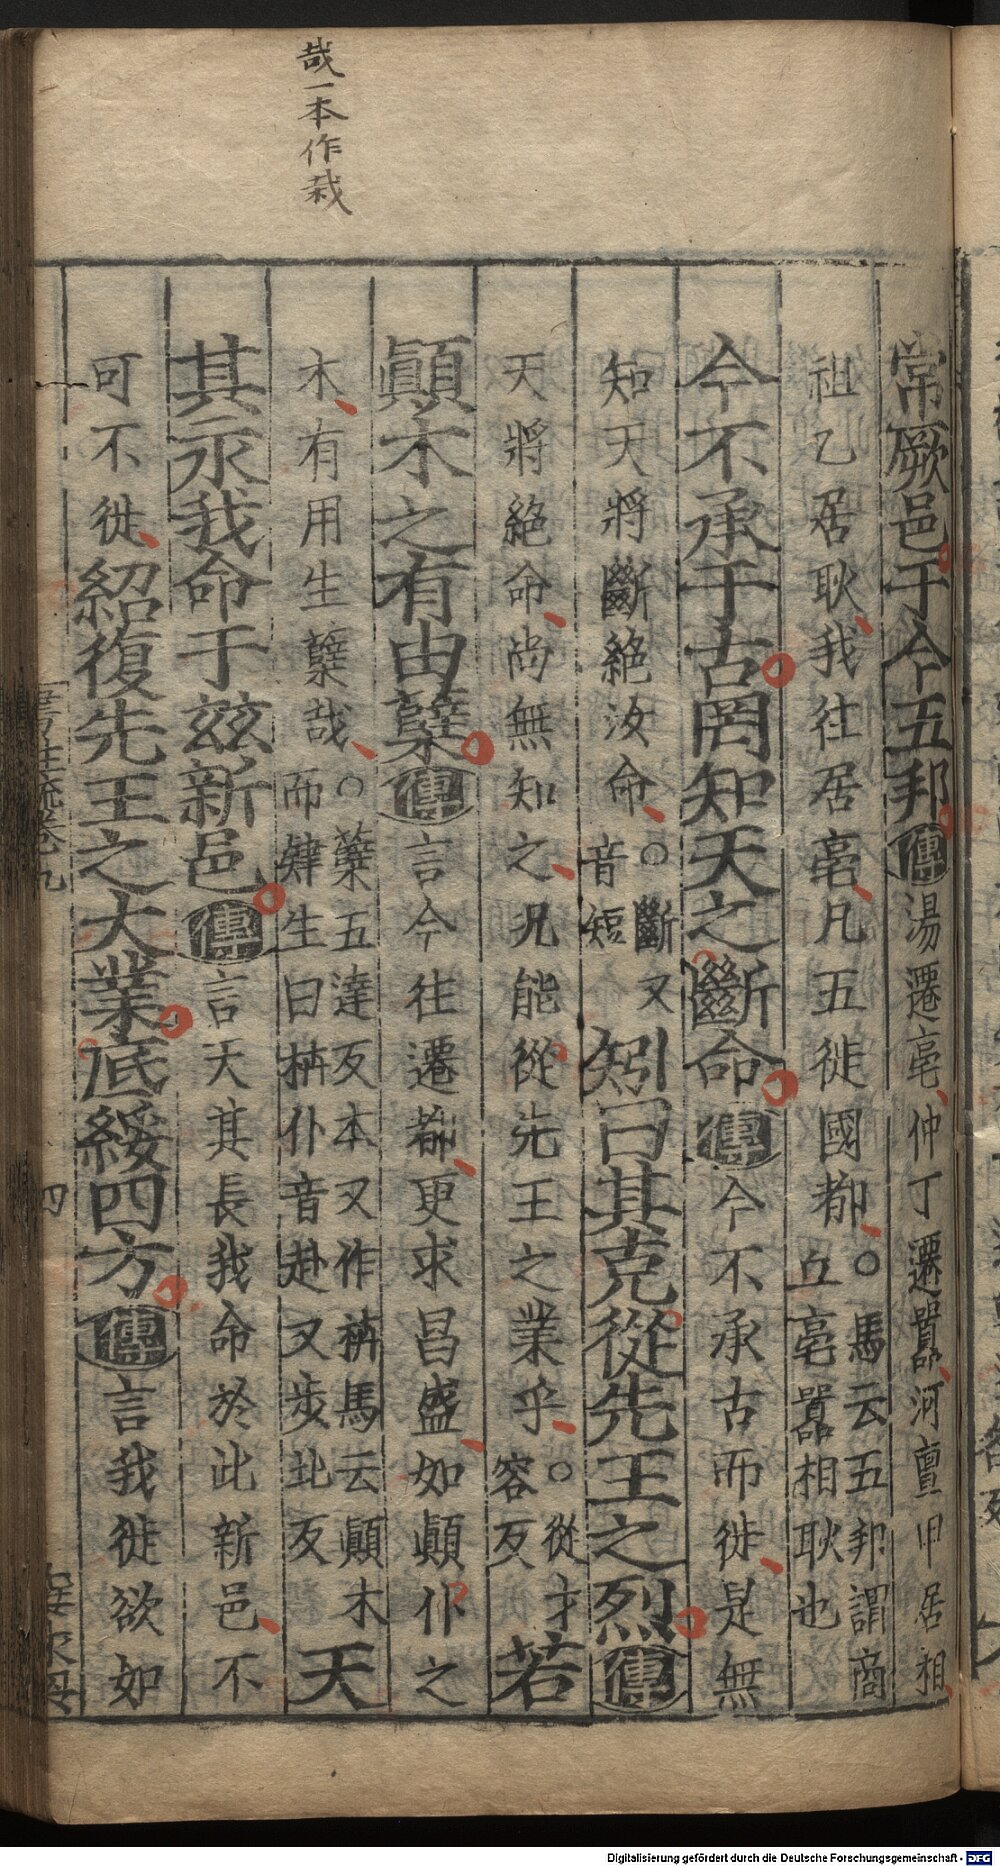 哉一本作栽
常厥邑于今五邦傳湯遷亳仲丁遷嚻河亶甲居相
祖乙居耿我往居亳凡五徙國都○馬云五邦謂商
丘亳嚻相耿也
今不承于古罔知天之斷命傳今不承古而徙是無
知天將斷絕汝命○斷又
音短
矧曰其克從先王之烈傳
天將絕命尚無知之况能從先王之業乎○從才
容反
若
顚木之有由蘖傳言今往遷都更求昌盛如顚仆之
木有用生蘖哉○蘖五達反本又作枿馬云顚木
而肄生曰枿仆音赴又步北反
天
其永我命于兹新邑傳言天其長我命於此新邑不
可不徙紹復先王之大業底綏四方傳言我徙欲如
書注疏卷九
四
Digitalisierung gefördert durch die Deutsche Forschungsgemeinschaft - DFG